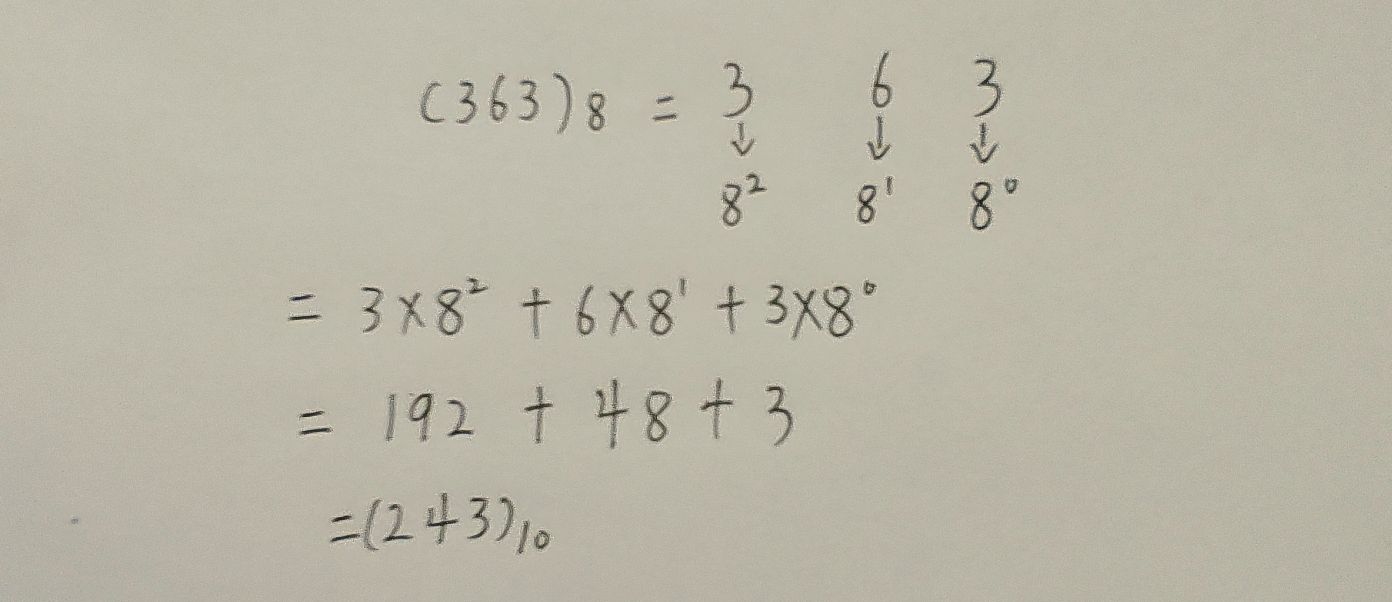 (363)₈ = 3 6 3
↓ ↓ ↓
8² 8¹ 8⁰
= 3×8² + 6×8¹ + 3×8⁰
= 192 + 48 + 3
=(243)₁₀